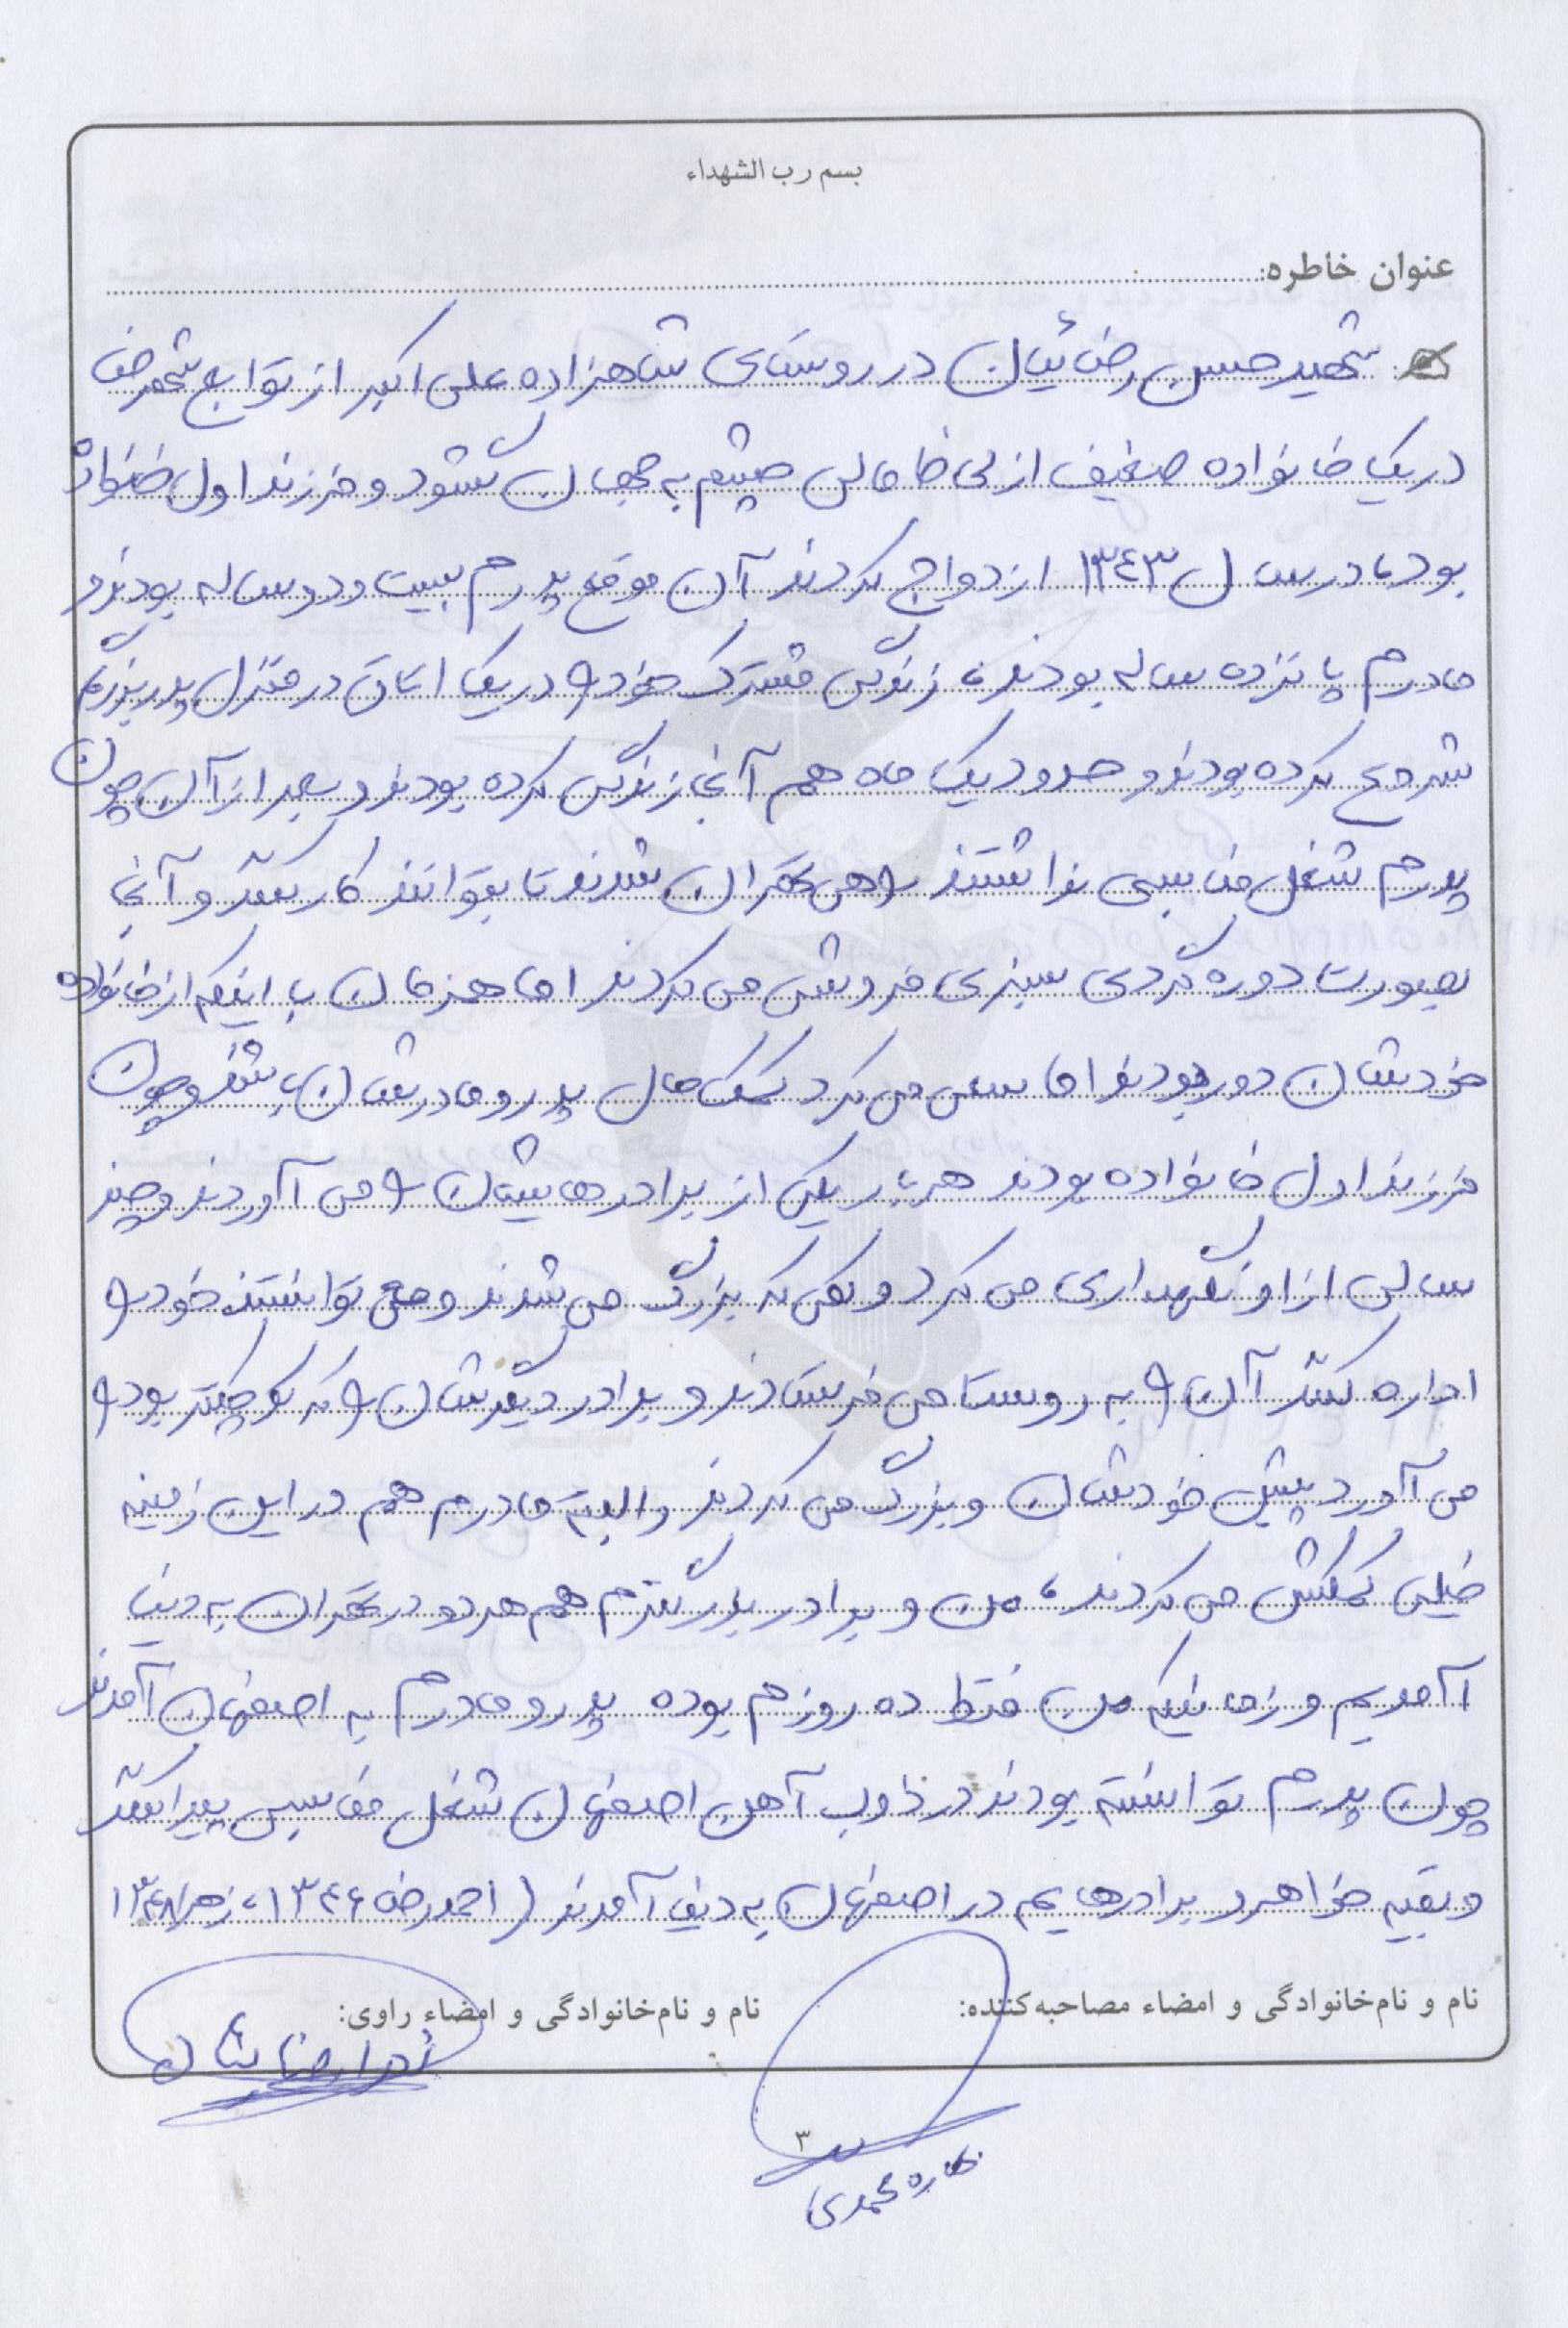 بسم رب الشهداء
عنوان خاطره:
شهید حسن رضائیان در روستای شاهزاده علی اکبر از توابع شهرضا
در یک خانواده ضعیف از لحاظ مالی چشم به جهان گشود و فرزند اول خانواده
بود، در سال ۱۳۴۳ ازدواج کردند آن موقع پدرم بیست و دو ساله بودند و
مادرم پانزده ساله بودند، زندگی مشترک خود را در یک اتاق در منزل پدربزرگم
شروع کرده بودند و حدود یک ماه هم آنجا زندگی کرده بودند و بعد از آن چون
پدرم شغل مناسبی نداشتند راهی تهران شدند تا بتوانند کار کنند و آنجا
بصورت دوره گردی سبزی فروشی می کردند اما همزمان با اینکه از خانواده
خودشان دور بودند اما سعی می کرد کمک حال پدر و مادرشان باشند و چون
فرزند اول خانواده بودند هر بار یکی از برادرهایشان را می آوردند و چند
سالی از او نگهداری می کرد وقتی که بزرگ می شدند و می توانستند خود را
اداره کنند آن را به روستا می فرستادند و برادر دیگرشان را که کوچکتر بود را
می آورد پیش خودشان و بزرگ می کردند و البته مادرم هم در این زمینه
خیلی کمکش می کردند، من و برادر بزرگترم هم هر دو در تهران به دنیا
آمدیم و زمانیکه من فقط ده روزم بوده پدر و مادرم به اصفهان آمدند
چون پدرم توانسته بودند در ذوب آهن اصفهان شغل مناسبی پیدا کنند
و بقیه خواهر و برادرهایم در اصفهان به دنیا آمدند (احمدرضا ۱۳۴۶، زهرا ۱۳۴۸
نام و نام خانوادگی و امضاء مصاحبه کننده:
نام و نام خانوادگی و امضاء راوی:
زهرا رضائیان
۳
محمدی